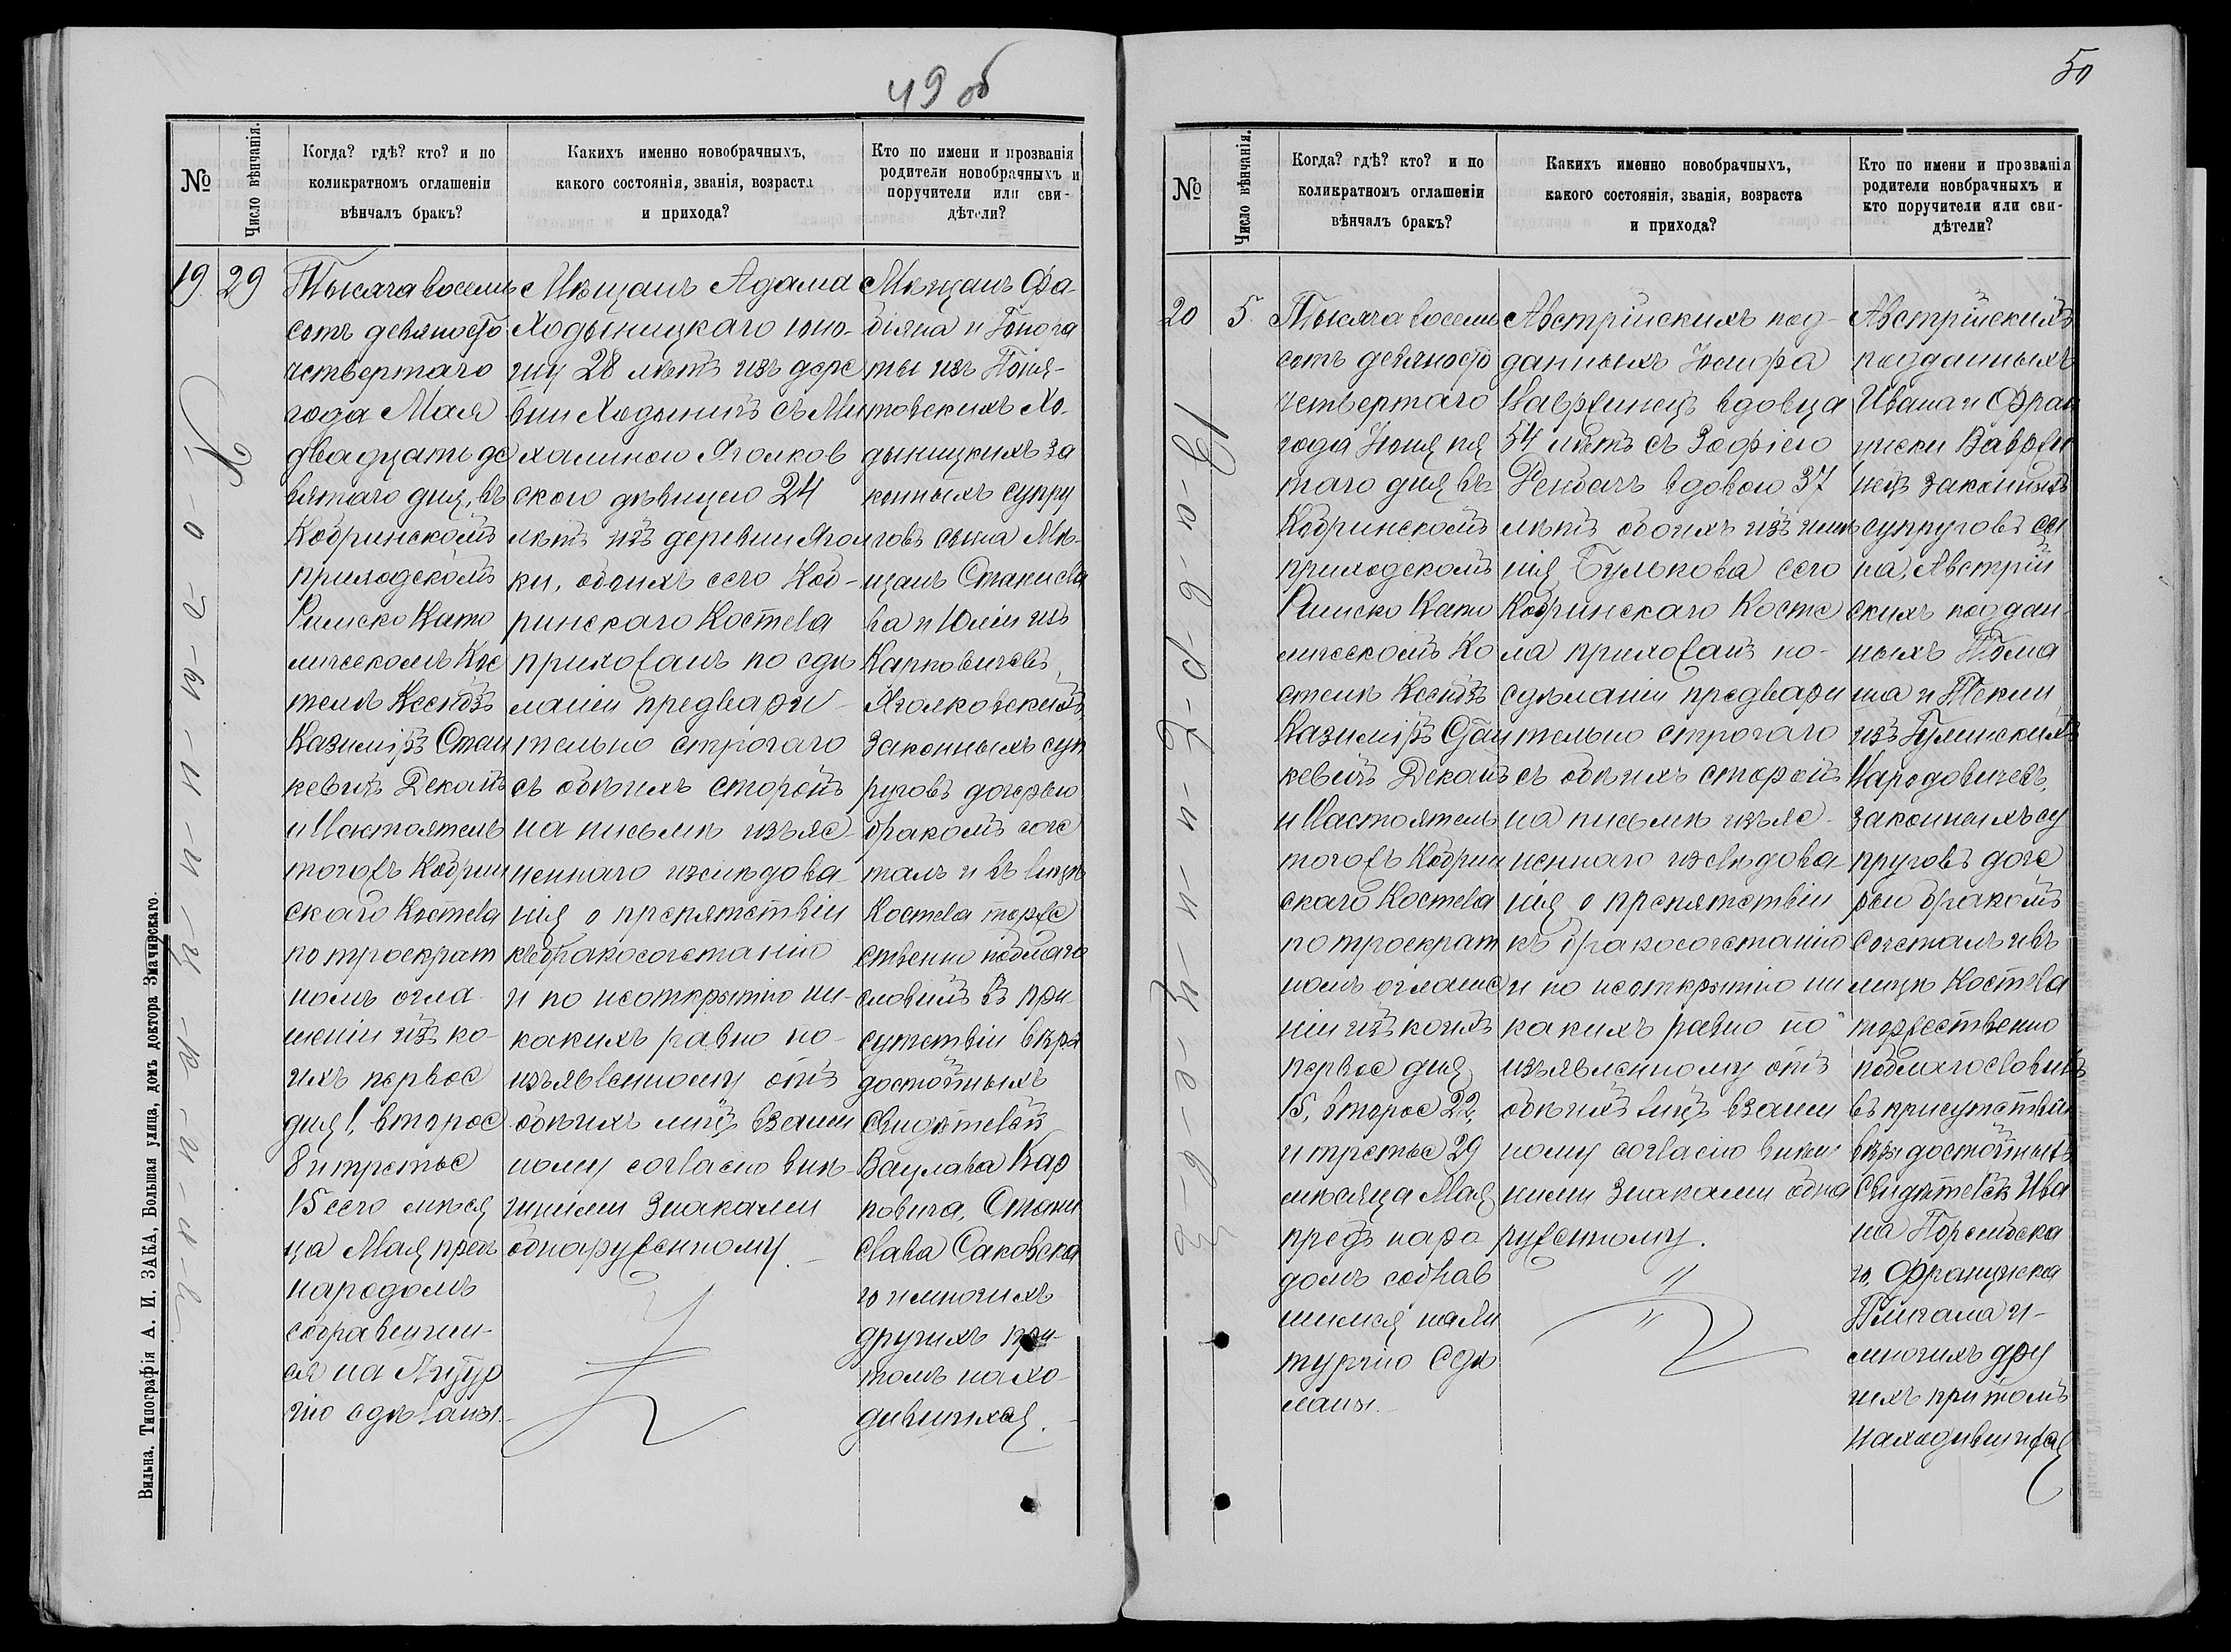 49 об
№
Число вѣнчанія.
Когда? гдѣ? кто? и по
коликратномъ оглашеніи
вѣнчалъ бракъ?
Какихъ именно новобрачныхъ,
какого состоянія, званія, возраста
и прихода?
Кто по имени и прозванія
родители новобрачныхъ и
поручители или сви-
дѣтели?
19.
29
Х-о-д-ы-н-и-ц-к-і-й
Тысяча восемь
сотъ девяносто
четвертаго
года Мая
двадцать де
вятаго дня, въ
Кобринскомъ
приходскомъ
Римско Като
лическомъ Кос
телѣ Ксендзъ
Казиміръ Стан
кевичъ Деканъ
и Настоятель
тогожъ Кобрин
скаго Костела
по троекрат
номъ огла-
шеніи изъ ко-
ихъ первое
дня 1, второе
8 и третье
15 сего мѣся
ца Мая предъ
народомъ
собравшим-
ся на Литур
гію сдѣланы.
Мѣщанъ Адама
Ходыницкаго юно-
шу 28 лѣтъ изъ дере
вни Ходыничъ съ Ми
халиною Яголков
скою дѣвицею 24
лѣтъ изъ деревни Ягол
ки, обоихъ сего Коб-
ринскаго Костела
прихожанъ по сдѣ
ланіи предвари-
тельно строгаго
съ обѣихъ сторонъ
на письмѣ изъяс-
неннаго изслѣдова-
нія о препятствіи
къ бракосочетанію
и по неоткрытію ни-
какихъ равно по-
изъявленному отъ
обѣихъ лицъ взаим
ному согласію внѣ-
шними знаками
обнаруженному. -
Мѣщанъ Фа-
біяна и Гонора
ты изъ Поня-
товскихъ Хо-
дыницкихъ за
конныхъ супру
говъ сына Мѣ-
щанъ Станисла
ва и Юліи изъ
Карповичевъ
Яголковскихъ,
законныхъ суп
руговъ дочерью
бракомъ соче
талъ и въ лицѣ
Костела торже
ственно поблаго
словилъ въ при-
сутствіи вѣро
достойныхъ
Свидѣтелей
Вацлава Кар
повича, Стани
слава Саковска
го и многихъ
другихъ при
томъ нахо-
дившихся. -
Вильна. Типографія А. И. ЗАКА, Большая улица, домъ доктора Значинскаго.
50
№
Число вѣнчанія.
Когда? гдѣ? кто? и по
коликратномъ оглашеніи
вѣнчалъ бракъ?
Какихъ именно новобрачныхъ,
какого состоянія, званія, возраста
и прихода?
Кто по имени и прозванія
родители новбрачныхъ и
кто поручители или сви-
дѣтели?
20
5.
Тысяча восемь
сотъ девяносто
четвертаго
года Іюня пя
таго дня въ
Кобринскомъ
приходскомъ
Римско Като
лическомъ Ко
стелѣ Ксендзъ
Казиміръ Стан
кевичъ Деканъ
и Настоятель
тогожъ Кобрин
скаго Костела
по троекрат
номъ оглаше
ніи изъ коихъ
первое дня
15, второе 22,
и третье 29
мѣсяца Мая
предъ наро
домъ собрав
шимся на Ли
тургію сдѣ
ланы. -
Австрійскихъ под-
данныхъ Іосифа
Вавржинецъ вдовца
54 лѣтъ съ Зофіею
вдовою 37
лѣтъ обоихъ изъ имѣ
нія Булькова сего
Кобринскаго Косте
ла прихожанъ по-
сдѣланіи предвари
тельно строгаго
съ обѣихъ сторонъ
на письмѣ изъяс-
неннаго изслѣдова-
нія о препятствіи
къ бракосочетанію
и по неоткрытію ни
какихъ равно по-
изъявленному отъ
обѣихъ лицъ взаим
ному согласію внѣш
ними знаками обна
руженному.
Австрійскихъ
подданныхъ
Ивана и Фран
циски Вавржи
нецъ законныхъ
супруговъ сы
на, Австрій
скихъ поддан
ныхъ Тома
ша и Теклы
изъ
Народовичевъ,
законныхъ су
пруговъ доче
рью бракомъ
сочеталъ и въ
лицѣ Костела
торжественно
поблагословилъ
въ присутствіи
вѣродостойныхъ
Свидѣтелей Ива
на Порембска
го, Франциска
и-
многихъ дру
гихъ при томъ
находившихся